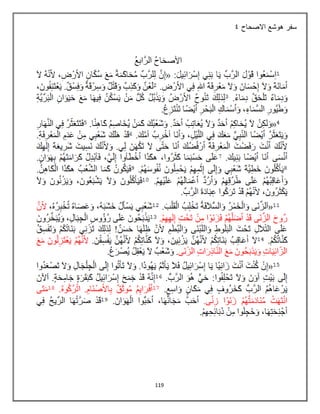 سفر هوشع الاصحاح 4
الأَصْحَاحُ الرَّابِعُ
1اِسْمَعُوا قَوْلَ الرَّبِّ يَا بَنِي إِسْرَائِيلَ: «إِنَّ لِلرَّبِّ مُحَاكَمَةً مَعَ سُكَّانِ الأَرْضِ، لأَنَّهُ لاَ
أَمَانَةَ وَلاَ إِحْسَانَ وَلاَ مَعْرِفَةَ اللهِ فِي الأَرْضِ. 2لَعْنٌ وَكَذِبٌ وَقَتْلٌ وَسِرْقَةٌ وَفِسْقٌ. يَعْتَنِفُونَ،
وَدِمَاءٌ تَلْحَقُ دِمَاءً. 3لِذلِكَ تَنُوحُ الأَرْضُ وَيَذْبُلُ كُلُّ مَنْ يَسْكُنُ فِيهَا مَعَ حَيَوَانِ الْبَرِّيَّةِ
وَطُيُورِ السَّمَاءِ، وَأَسْمَاكِ الْبَحْرِ أَيْضًا تَنْتَزِعُ.
4«وَلكِنْ لاَ يُحَاكِمْ أَحَدٌ وَلاَ يُعَاتِبْ أَحَدٌ. وَشَعْبُكَ كَمَنْ يُخَاصِمُ كَاهِنًا. 5فَتَتَعَثَّرُ فِي النَّهَارِ
وَيَتَعَثَّرُ أَيْضًا النَّبِيُّ مَعَكَ فِي اللَّيْلِ، وَأَنَا أُخْرِبُ أُمَّكَ. 6قَدْ هَلَكَ شَعْبِي مِنْ عَدَمِ الْمَعْرِفَةِ.
لأَنَّكَ أَنْتَ رَفَضْتَ الْمَعْرِفَةَ أَرْفُضُكَ أَنَا حَتَّى لاَ تَكْهَنَ لِي. وَلأَنَّكَ نَسِيتَ شَرِيعَةَ إِلهِكَ
أَنْسَى أَنَا أَيْضًا بَنِيكَ. 7عَلَى حَسْبَمَا كَثُرُوا، هكَذَا أَخْطَأُوا إِلَيَّ، فَأُبْدِلُ كَرَامَتَهُمْ بِهَوَانٍ.
8يَأْكُلُونَ خَطِيَّةَ شَعْبِي وَإِلَى إِثْمِهِمْ يَحْمِلُونَ نُفُوسَهُمْ. 9فَيَكُونُ كَمَا الشَّعْبُ هكَذَا الْكَاهِنُ.
وَأُعَاقِبُهُمْ عَلَى طُرُقِهِمْ وَأَرُدُّ أَعْمَالَهُمْ عَلَيْهِمْ. 10فَيَأْكُلُونَ وَلاَ يَشْبَعُونَ، وَيَزْنُونَ وَلاَ
يَكْثُرُونَ، لأَنَّهُمْ قَدْ تَرَكُوا عِبَادَةَ الرَّبِّ.
11«اَلزِّنَى وَالْخَمْرُ وَالسُّلاَفَةُ تَخْلِبُ الْقَلْبَ. 12شَعْبِي يَسْأَلُ خَشَبَهُ، وَعَصَاهُ تُخْبِرُهُ، لأَنَّ
رُوحَ الزِّنَى قَدْ أَضَلَّهُمْ فَزَنَوْا مِنْ تَحْتِ إِلهِهِمْ. 13يَذْبَحُونَ عَلَى رُؤُوسِ الْجِبَالِ، وَيُبَخِّرُونَ
عَلَى التِّلاَلِ تَحْتَ الْبَلُّوطِ وَاللُّبْنَى وَالْبُطْمِ لأَنَّ ظِلَّهَا حَسَنٌ! لِذلِكَ تَزْنِي بَنَاتُكُمْ وَتَفْسِقُ
كَنَّاتُكُمْ. 14لاَ أُعَاقِبُ بَنَاتِكُمْ لأَنَّهُنَّ يَزْنِينَ، وَلاَ كَنَّاتِكُمْ لأَنَّهُنَّ يَفْسِقْنَ. لأَنَّهُمْ يَعْتَزِلُونَ مَعَ
الزَّانِيَاتِ وَيَذْبَحُونَ مَعَ النَّاذِرَاتِ الزِّنَى. وَشَعْبٌ لاَ يَعْقِلُ يُصْرَعُ.
15«إِنْ كُنْتَ أَنْتَ زَانِيًا يَا إِسْرَائِيلُ فَلاَ يَأْثَمُ يَهُوذَا. وَلاَ تَأْتُوا إِلَى الْجِلْجَالِ وَلاَ تَصْعَدُوا
إِلَى بَيْتِ آوَنَ وَلاَ تَحْلِفُوا: حَيٌّ هُوَ الرَّبُّ. 16إِنَّهُ قَدْ جَمَحَ إِسْرَائِيلُ كَبَقَرَةٍ جَامِحَةٍ. اَلآنَ
يَرْعَاهُمُ الرَّبُّ كَخَرُوفٍ فِي مَكَانٍ وَاسِعٍ. 17أَفْرَايِمُ مُوثَقٌ بِالأَصْنَامِ. اتْرُكُوهُ. 18مَتَى
انْتَهَتْ مُنَادَمَتُهُمْ زَنَوْا زِنًى. أَحَبَّ مَجَانُّهَا، أَحَبُّوا الْهَوَانَ. 19قَدْ صَرَّتْهَا الرِّيحُ فِي
أَجْنِحَتِهَا، وَخَجِلُوا مِنْ ذَبَائِحِهِمْ.
119